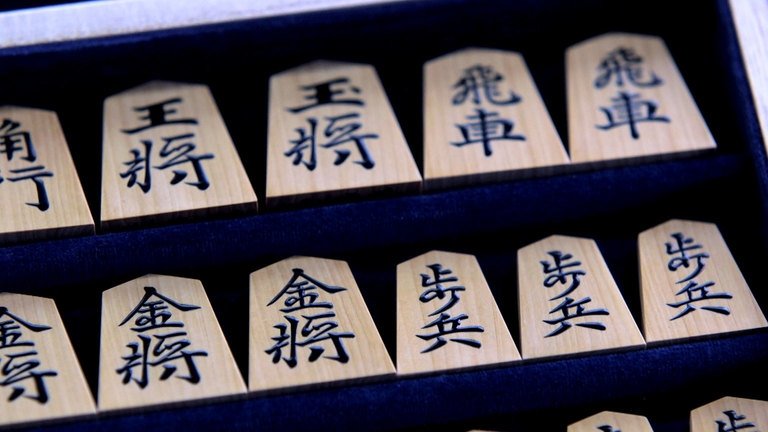 角行
王将
玉将
飛車
飛車
金将
金将
金将
歩兵
歩兵
歩兵